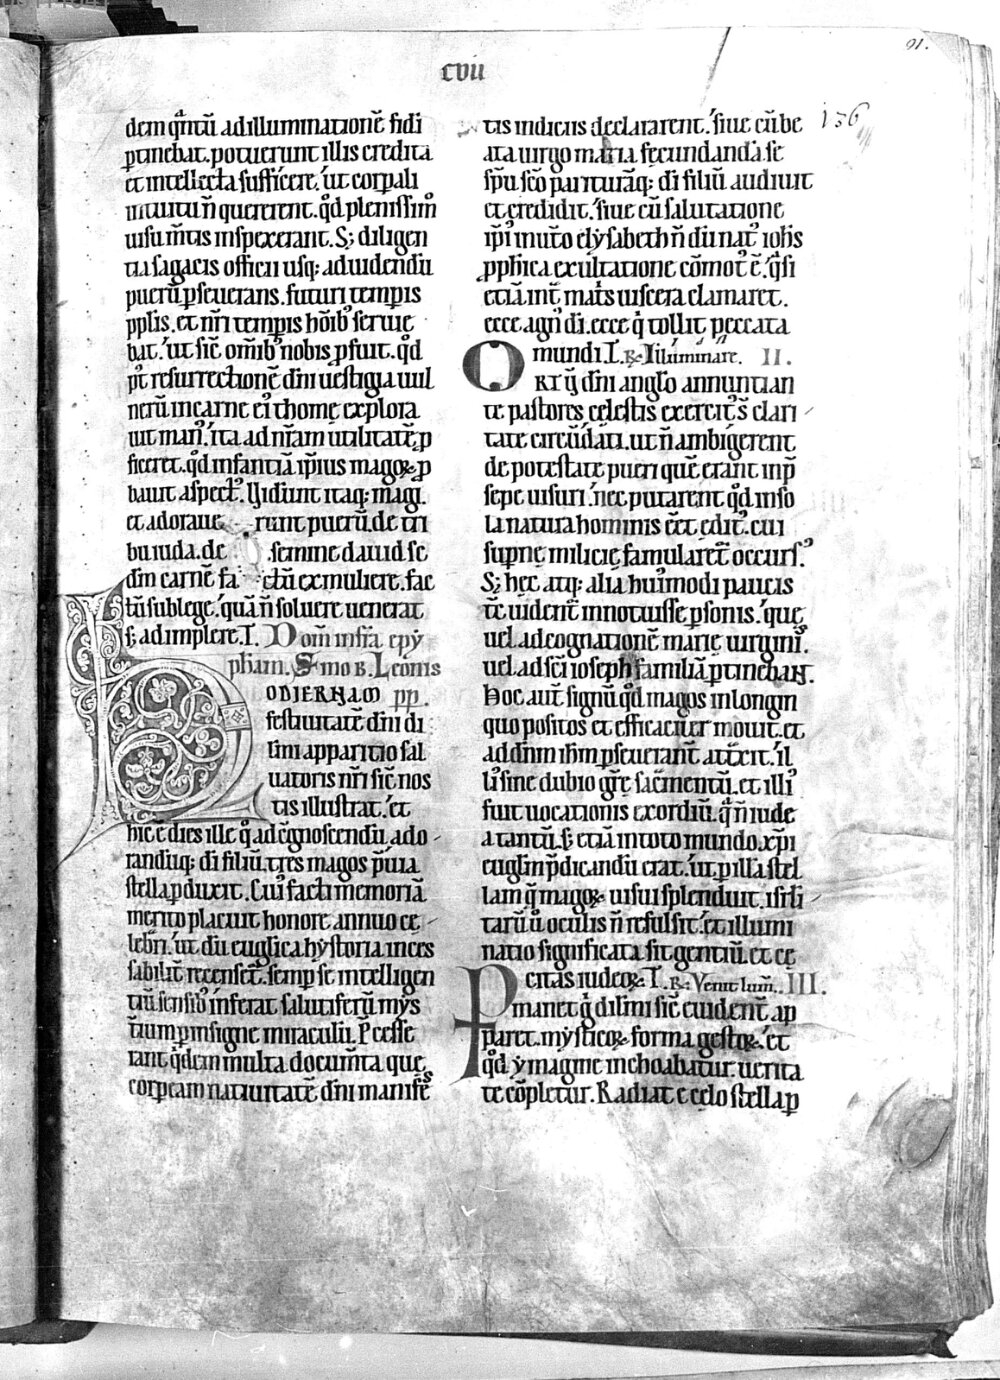 91.
cvii
136
dem q̃ntũ ad illuminationẽ fidi
ꝑtinebat. potuerunt illis credita
et intellecta sufficere. ut corpali
intuitu ñ quererent. qd̃ plenissim̃
uisu m̃tis inspexerant. Sꝫ diligen
tia sagacis officii usqꝫ ad uidendũ
puerũ ꝑseuerans. futuri temp̃is
ppl̃is. et nr̃i temp̃is hoĩbꝰ seruie
bat. ut sic̃ om̃ibꝰ nobis ꝓfuit. qd̃
p̃t resurrectionẽ dñi uestigia uul
nerũ in carne eiꝰ thome explora
uit manꝰ. ita ad nr̃am utilitatẽ ꝓ
ficeret. qd̃ infantiã ip̃ius magoꝝ ꝓ
bauit aspectꝰ. Viderunt itaqꝫ magi.
et adoraue runt puerũ. de tri
bu iuda. de semine dauid se
dm̃ carnẽ fa ctũ ex muliere. fac
tũ sub lege. quã ñ soluere uenerat
sꝫ adimplere. T. Dom̃ infra epy
pham. Smo b. Leonis
ODIERNAM pp.
festiuitatẽ dñi di
lm̃i apparitio sal
uatoris nr̃i sic̃ nos
tis illustrat. et
hic ẽ dies ille q̃ ad ꝯgnoscendũ. ado
randũqꝫ di filiũ. tres magos p̃uia
stella ꝑduxit. Cuiꝰ facti memoriã
merito placuit honore annuo ce
lebrr̃i. ut dũ euglica hystoria inces
sabilit̃ recenset̃. semꝑ se intelligen
tiũ sensibꝰ inferat salutiferũ mys
tiũ ꝑ insigne miraculũ. P̃cesse
rant q̃dem multa documñta que
corpeam natiuitatẽ dñi manifes
tis indiciis declararent. siue cũ be
ata uirgo maria fecundandã se
sp̃u sc̃o parituraq̃ꝫ di filiũ audiuit
et credidit. siue cũ salutatione
ip̃iꝰ in ut̃o elysabeth ñ dũ natꝰ ioh̃s
ꝓph̃ica exultatione cõmotꝰ ẽ. q̃si
etiã int̃ mat̃s uiscera clamaret.
ecce agnꝰ di. ecce q̃ tollit peccata
mundi T. ℟. Illuminare. II.
O RTI ỹ dñi anglo annuntian
te pastores celestis exercitꝰ clari
tate circũdati. ut ñ ambigerent
de potestate pueri quẽ erant in p̃
sepe uisuri. nec putarent qd̃ in so
la natura hominis eẽt editꝰ. cui
sup̃ne milicie famularet̃ occursꝰ.
Sꝫ hec atqꝫ alia huiꝰmodi paucis
tc̃ uident̃ innotuisse ꝑsonis. que
uel ad cognationẽ marie uirginiꝰ.
uel ad sc̃i ioseph familiã ꝑtinebañ.
Hoc aut̃ signũ qd̃ magos in longin
quo positos et efficacit̃ mouit. et
ad dñm ih̃m ꝑseuerant̃ atraxit. il
liꝰ sine dubio gr̃e sacr̃mentũ. et illiꝰ
fuit uocationis exordiũ. q̃ ñ iude
a tantũ. sꝫ etiã in toto mundo. xp̃i
euglm p̃dicandũ erat. ut ꝑ illa stel
lam q̃ magoꝝ uisui splenduit. isrl̃i
tarũ ũ oculis ñ refulsit. et illumi
natio significata sit gentiũ. et ce
citas iudeoꝝ. T. ℟. Venit lum̃. III.
P manet q̃ dilm̃i sic̃ euident̃ ap
paret. mysticoꝝ forma gestoꝝ. et
qd̃ ymagine inchoabatur. uerita
te cõpletur. Radiat e celo stella ꝑ